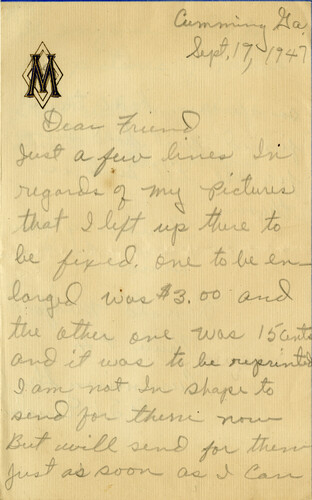 Cumming Ga.
Sept, 17, 1947
M
Dear Friend
Just a few lines In
regards of my Pictures
that I left up there to
be fixed. one to be en-
larged was $3.00 and
the other one was 15 cnts
and it was to be reprinted
I am not In shape to
send for them now
But will send for them
Just as soon as I Can